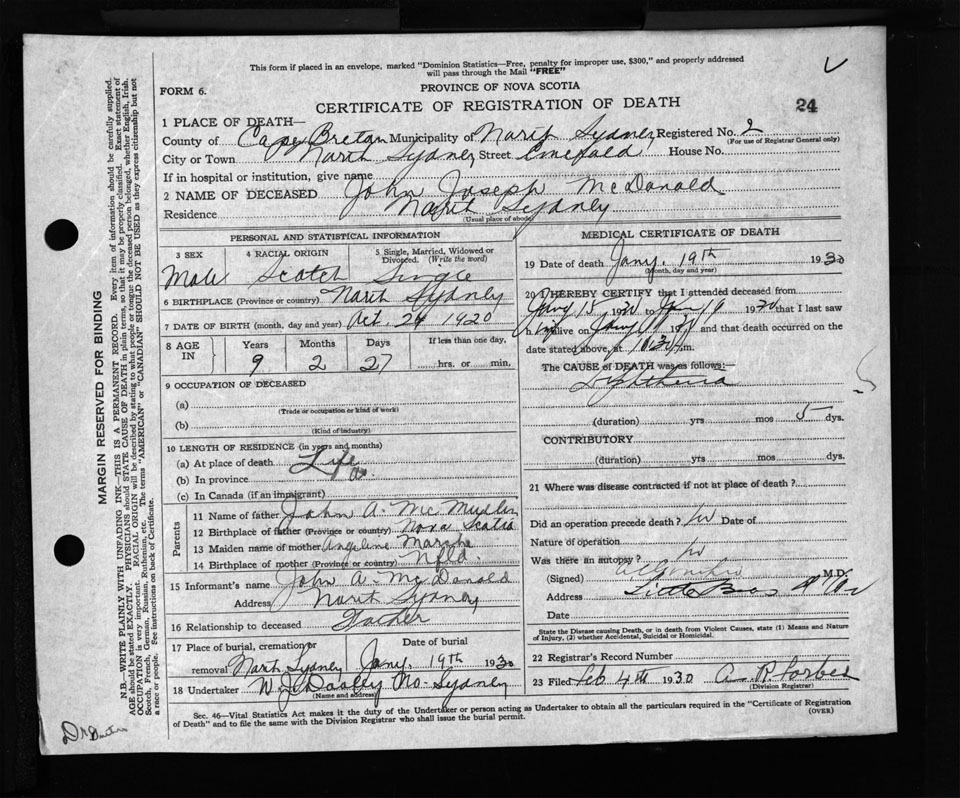 This form if placed in an envelope, marked "Dominion Statistics—Free, penalty for improper use, $300," and properly addressed
will pass through the Mail "FREE"
FORM 6.
PROVINCE OF NOVA SCOTIA
CERTIFICATE OF REGISTRATION OF DEATH
24
1 PLACE OF DEATH—
County of Cape Breton Municipality of North Sydney Registered No. 2
(For use of Registrar General only)
City or Town North Sydney Street Emerald House No.
If in hospital or institution, give name
2 NAME OF DECEASED John Joseph McDonald
Residence North Sydney
(Usual place of abode)
PERSONAL AND STATISTICAL INFORMATION
3 SEX 4 RACIAL ORIGIN 5 Single, Married, Widowed or Divorced. (Write the word)
Male Scotch Single
6 BIRTHPLACE (Province or country) North Sydney
7 DATE OF BIRTH (month, day and year) Oct. 24 1920
8 AGE IN Years Months Days If less than one day,
9 2 27 hrs. or min.
9 OCCUPATION OF DECEASED
(a)
(Trade or occupation or kind of work)
(b)
(Kind of industry)
10 LENGTH OF RESIDENCE (in years and months)
(a) At place of death Life
(b) In province
(c) In Canada (if an immigrant)
Parents
11 Name of father John A. Mc
12 Birthplace of father (Province or country) Nova Scotia
13 Maiden name of mother Angeline Marche
14 Birthplace of mother (Province or country) Nfld.
15 Informant's name John A. McDonald
Address North Sydney
16 Relationship to deceased Father
17 Place of burial, cremation or removal North Sydney Date of burial Jany. 19th 1930
18 Undertaker W. J. Dooley No. Sydney
(Name and address)
MEDICAL CERTIFICATE OF DEATH
19 Date of death Jany. 19th 1930
(Month, day and year)
20 I HEREBY CERTIFY that I attended deceased from
Jany 15 1930 to Jan 19 1930 that I last saw
h im alive on Jany and that death occurred on
date stated above, at 10.30 m.
The CAUSE of DEATH was as follows:—
Diphtheria
(duration) yrs mos 5 dys.
CONTRIBUTORY
(duration) yrs mos dys.
21 Where was disease contracted if not at place of death?
Did an operation precede death? No Date of
Nature of operation
Was there an autopsy? No
(Signed) M.D.
Address Little Bras d'Or
Date
State the Disease causing Death, or in death from Violent Causes, state (1) Means and Nature
of Injury, (2) whether Accidental, Suicidal or Homicidal.
22 Registrar's Record Number
23 Filed Feb 4th 1930 A. R. Forbes
(Division Registrar)
Sec. 46—Vital Statistics Act makes it the duty of the Undertaker or person acting as Undertaker to obtain all the particulars required in the "Certificate of Registration
of Death" and to file the same with the Division Registrar who shall issue the burial permit.
(OVER)
MARGIN RESERVED FOR BINDING
N.B.—WRITE PLAINLY WITH UNFADING INK—THIS IS A PERMANENT RECORD. Every item of information should be carefully supplied.
AGE should be stated EXACTLY. PHYSICIANS should STATE CAUSE OF DEATH in plain terms, so that it may be properly classified. Exact statement of
OCCUPATION is very important. RACIAL ORIGIN will be described by stating to what people or tongue the deceased person belonged, whether English, Irish,
Scotch, French, German, Russian, Ruthenian, etc. The terms "AMERICAN" or "CANADIAN" SHOULD NOT BE USED as they express citizenship but not
a race or people. See instructions on back of Certificate.